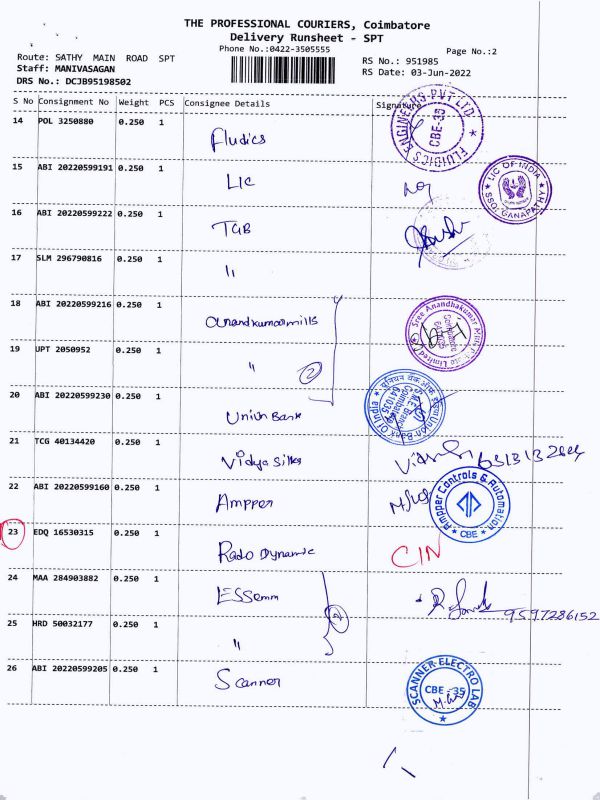 THE PROFESSIONAL COURIERS, Coimbatore
Delivery Runsheet - SPT
Phone No.:0422-3505555
Page No.:2
Route: SATHY MAIN ROAD SPT
Staff: MANIVASAGAN
DRS No.: DCJB95198502
RS No.: 951985
RS Date: 03-Jun-2022
S No Consignment No Weight PCS Consignee Details Signature
14 POL 3250880 0.250 1 Fludics
FLUIDICS ENGINEERS PVT LTD CBE-35
15 ABI 20220599191 0.250 1 LIC
LIC OF INDIA SSO: GANAPATHY
16 ABI 20220599222 0.250 1 TGB
17 SLM 296790816 0.250 1 "
18 ABI 20220599216 0.250 1 anandkumarmills
Sree Anandhakumar Mills Limited Coimbatore 641035
19 UPT 2050952 0.250 1 " 2
20 ABI 20220599230 0.250 1 Union Bank
Union Bank Of India Coimbatore 641035
21 TCG 40134420 0.250 1 Vidya Silks
22 ABI 20220599160 0.250 1 Ampper
Ampper Controls & Automation CBE
23 EDQ 16530315 0.250 1 Rado Dynamic CIN
24 MAA 284903882 0.250 1 ESSemm 9597286152
25 HRD 50032177 0.250 1 " 2
26 ABI 20220599205 0.250 1 Scanner
SCANNER ELECTRO LAB CBE - 35